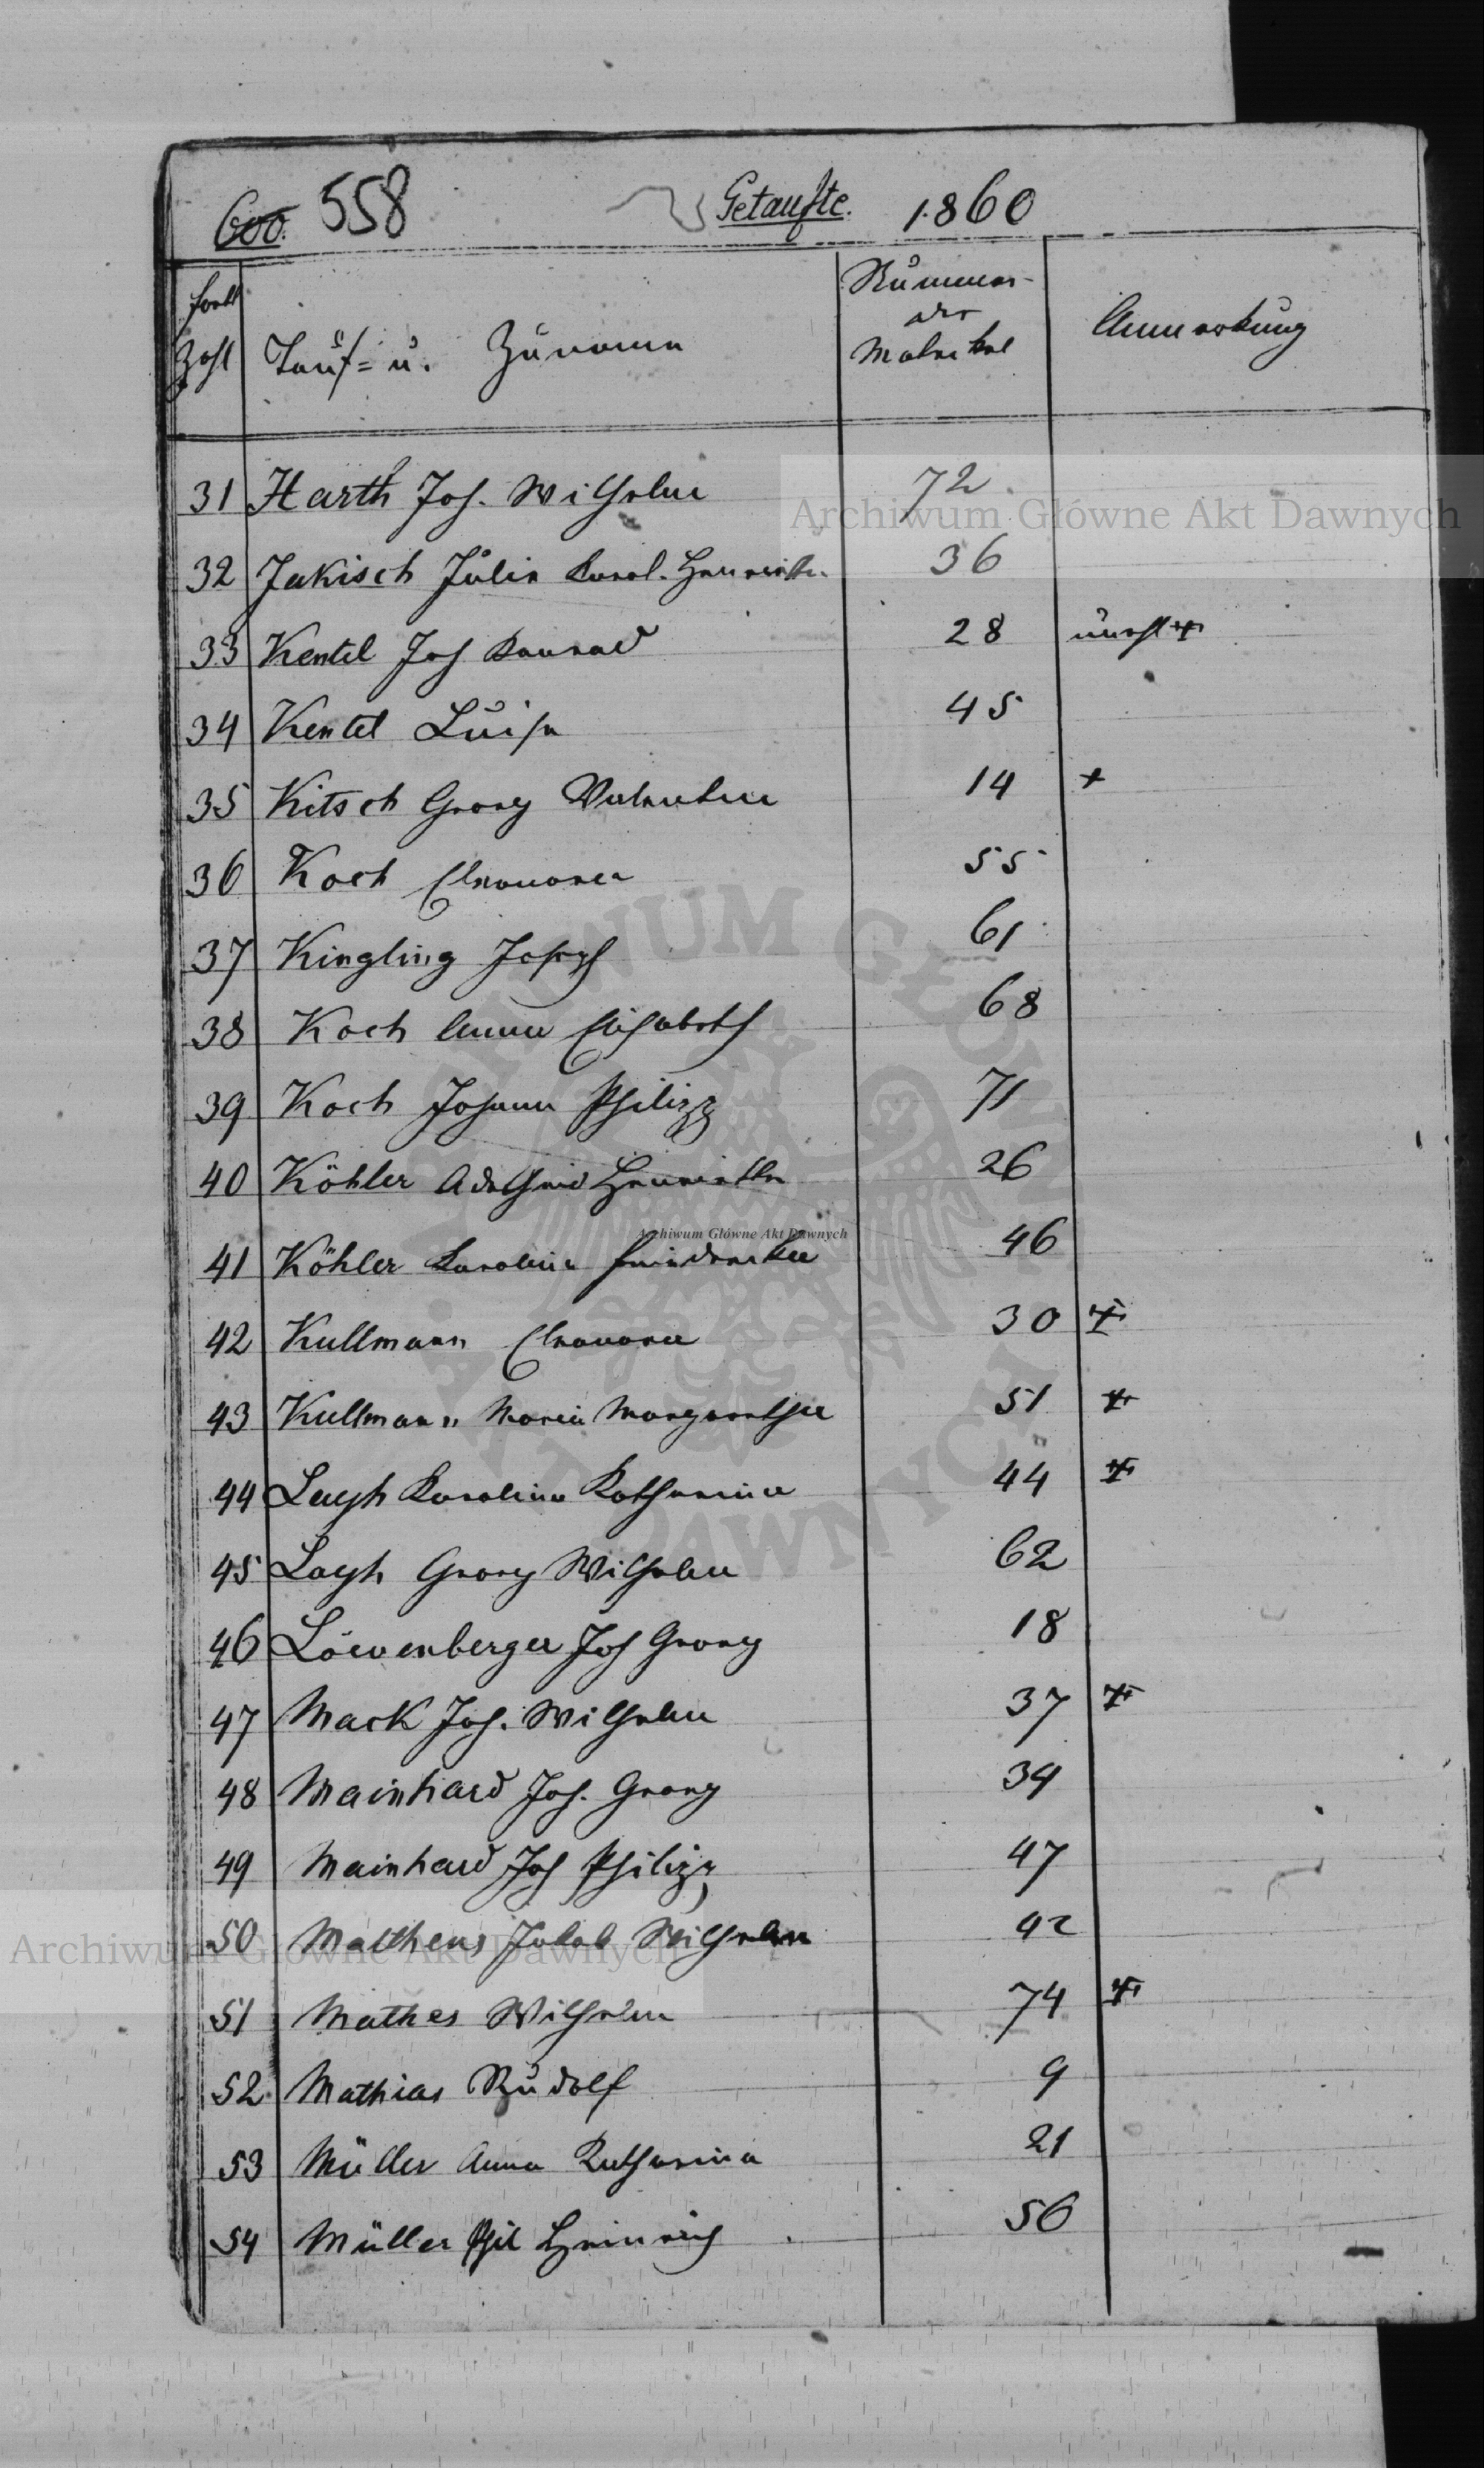 600. 558 Getaufte. 1860
Fortl
Zahl Tauf= u. Zuname Nummer der Matrikel Anmerkung
31 Harth Joh. Wilhelm 72
Archiwum Główne Akt Dawnych
32 Jakisch Julie Karol. Henriette 36
33 Kentel Joh Konrad 28 unehl +
34 Kentel Luise 45
35 Kitsch Georg Valentin 14 +
36 Koch Eleonora 55
37 Kingling Joseph 61
38 Koch Anna Elisabeth 68
39 Koch Johann Philipp 71
40 Köhler Adelheid Henriette 26
Archiwum Główne Akt Dawnych
41 Köhler Karolina Friederika 46
42 Kullmann Eleonora 30 +
43 Kullmann Maria Margaretha 51 +
44 Leyh Karolina Katharina 44 +
45 Layh Georg Wilhelm 62
46 Löwenberger Joh Georg 18
47 Mack Joh. Wilhelm 37 +
48 Mainhard Joh. Georg 34
49 Mainhard Joh Philipp 47
50 Matheus Jakob Wilhelm 42
Archiwum Główne Akt Dawnych
51 Mathes Wilhelm 74 +
52 Mathias Rudolf 9
53 Müller Anna Katharina 21
54 Müller Phil Heinrich 56
ARCHIWUM GŁÓWNE AKT DAWNYCH